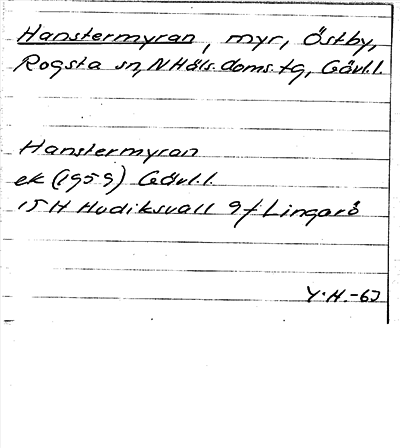 Hanstermyran, myr, Östby,
Rogsta sn, N Häls. doms. tg, Gävl.l.
Hanstermyran
ek (1959) Gävl.l.
15 H Hudiksvall 9f Lingarö
Y.H.-63